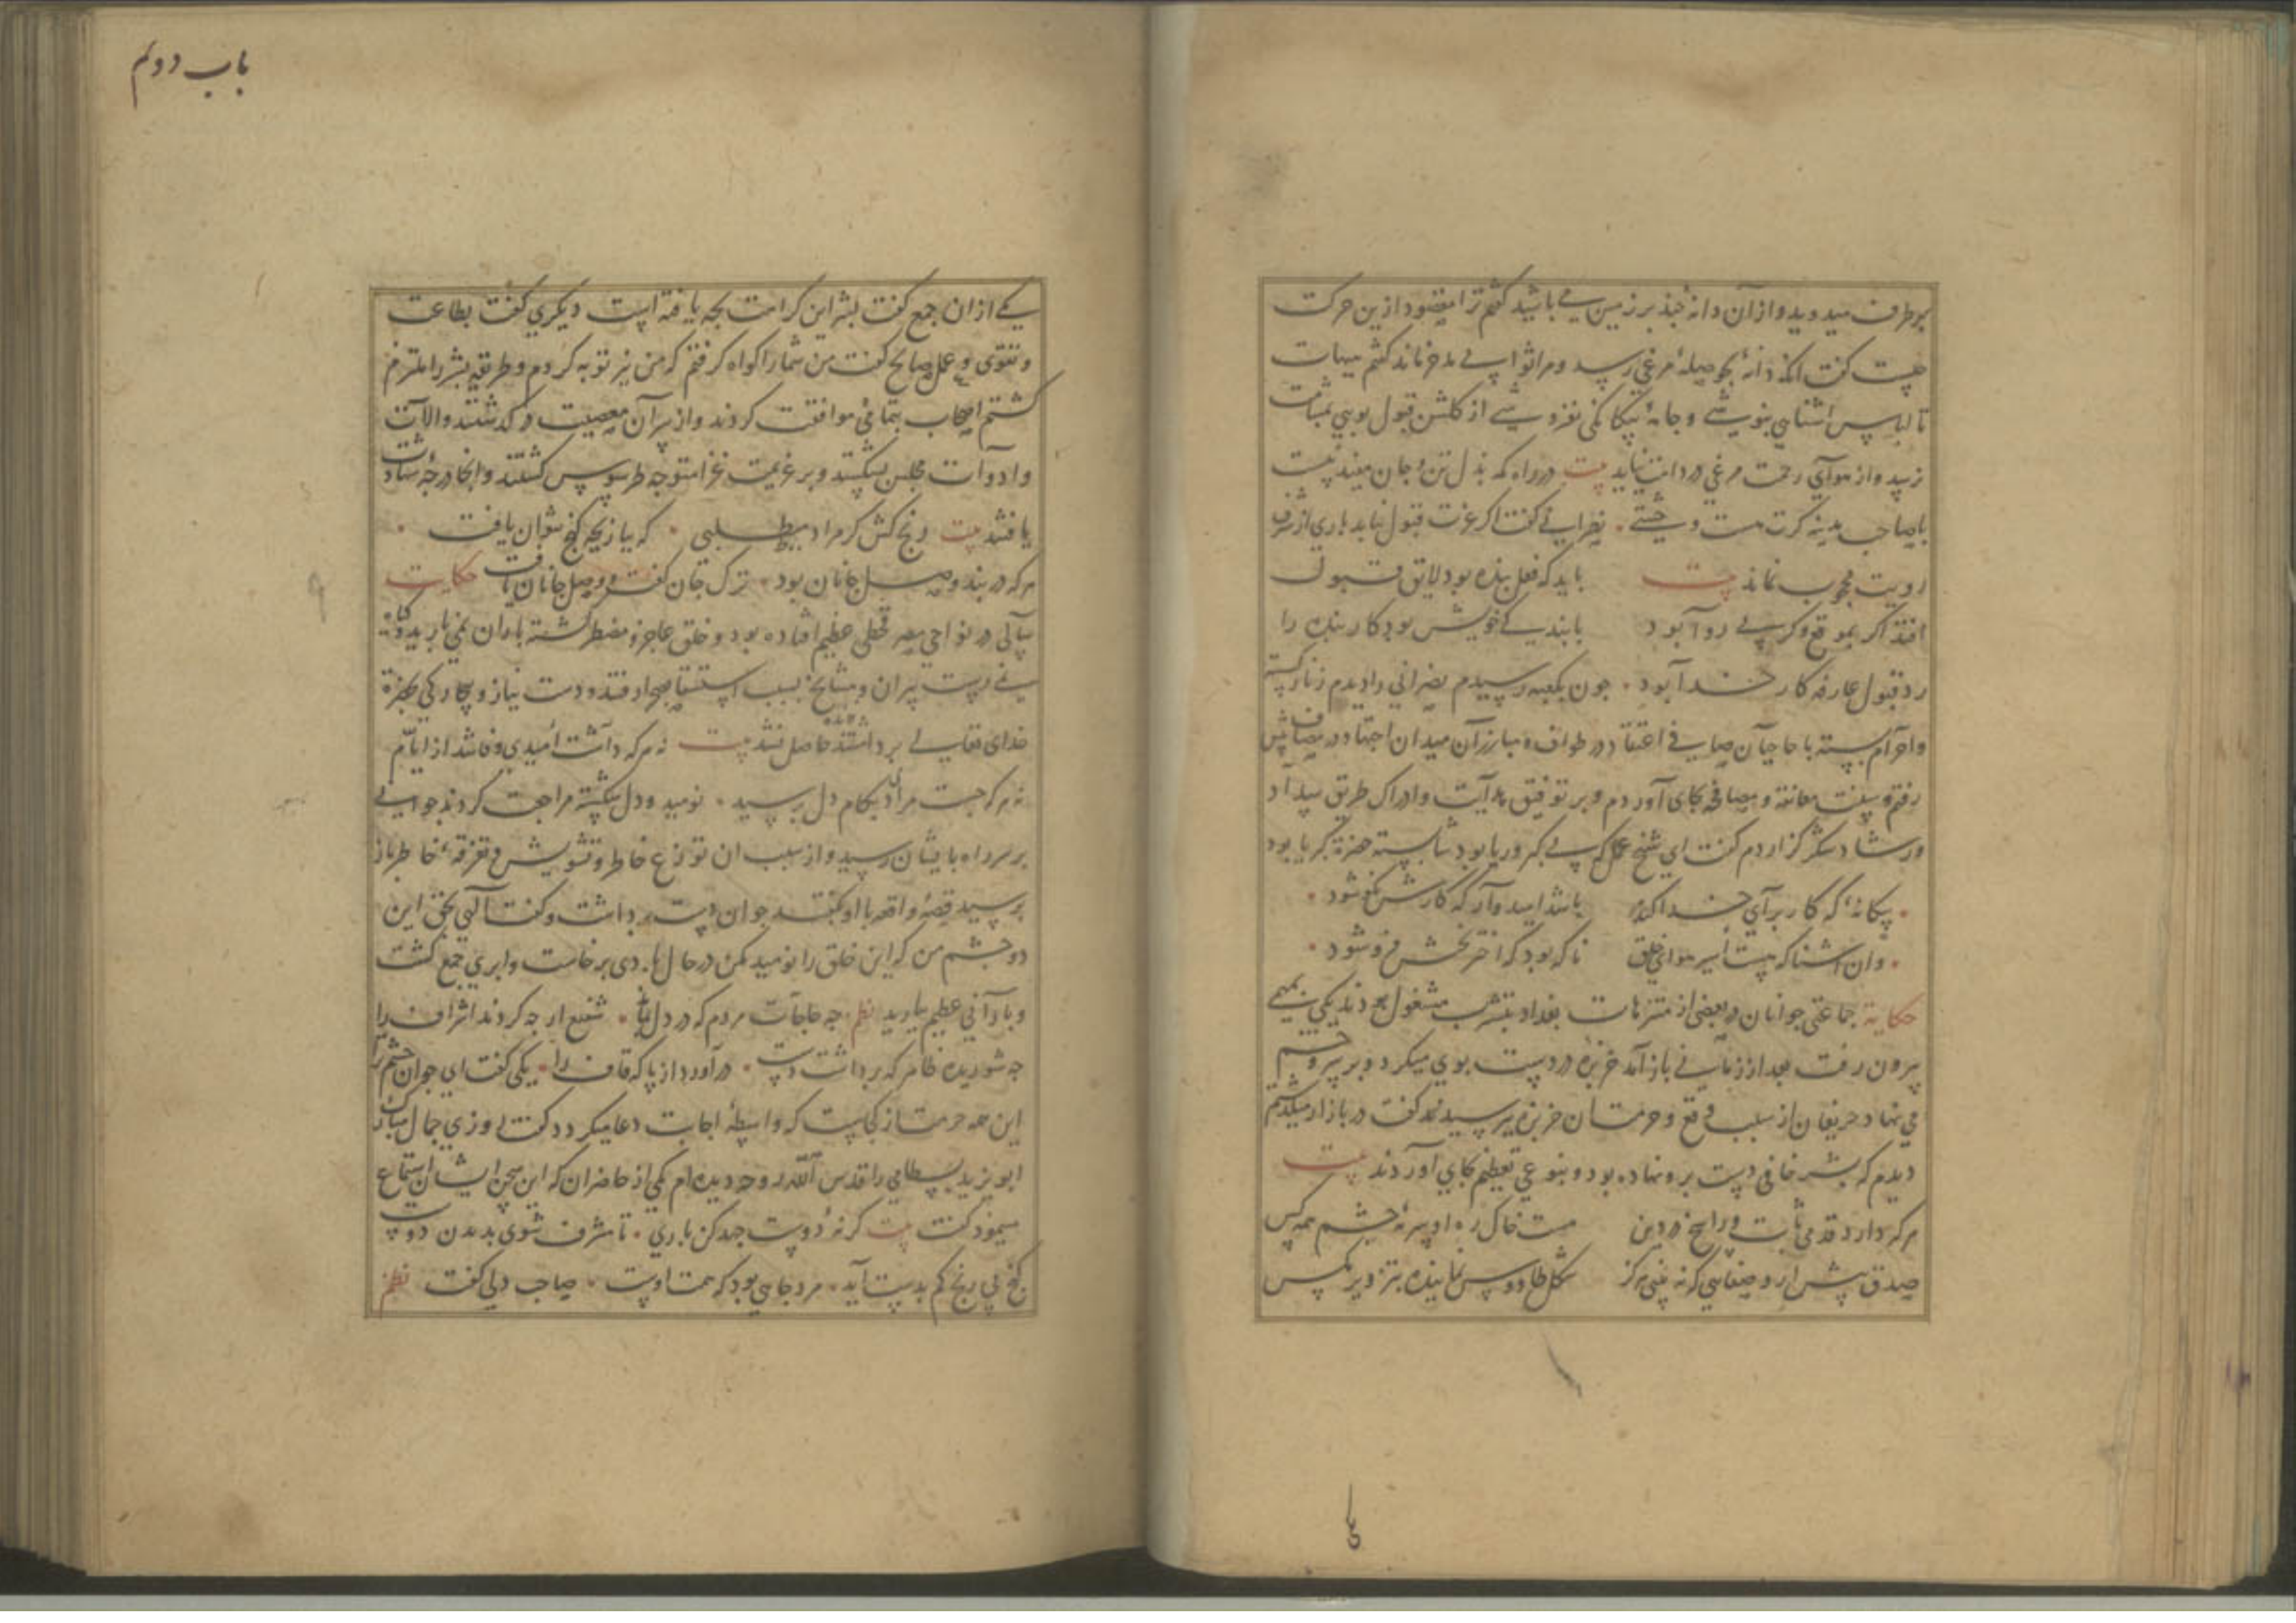 هر طرف میدوید و از آن دانهٔ چند بر زمین می پاشید گفتم ترا مقصود ازین حرکت
چیست گفت آنکه دانهٔ بحوصلهٔ مرغی رسد و مرا ثوابی مدخر ماند گفتم هیهات
تا لباس آشنایی نپوشی و جامهٔ بیگانگی نفروشی از گلشن قبول بویی بمشامت
نرسد و از هوای رحمت مرغی در دامت نیاید بیت در راه که بذل تن و جان مفید نیست
با صاحب مدینه کرت هست وحشتی نصرانی گفت اگر عزت قبول نیابد باری از شرف
رویت محجوب نماند بیت باید که فعل بنده بود لایق قبول
افتد اگر بموقع و کر بی روا بود با بندگی خویش بود کار بنده را
رد و قبول عارفه کار خدا بود چون بکعبه رسیدم نصرانی را دیدم زنار گسسته
و احرام بسته با حاجیان صافی اعتقاد در طواف و مبارزان میدان اجتهاد در مصاف پیش
رفتم و سنت معانقه و مصافحه بجای آوردم و بر توفیق هدایت و ادراک طریق سداد
و رشاد شکر گزاردم گفت ای شیخ عمل که بی کبر و ریا بود شایسته حضرة کبریا بود
بیگانهٔ که کار برای خدا کند باشد امیدوار که کارش نکو شود
وان آشنا که هست اسیر هوای خلق ناگه بود که اختر بختش فرو شود
حکایة جماعتی جوانان در بعضی از متنزهات بغداد بتشرب مشغول بودند یکی بمهمی
بیرون رفت بعد از زمانی باز آمد خربزه در دست بوی میکرد و بر سر و چشم
می نهاد حریفان از سبب وقع و حرمت آن خربزه پرسیدند گفت در بازار میگذشتم
دیدم که بشر حافی دست برو نهاده بود و بنوعی تعظیم بجای آوردند بیت
هرکه دارد قدمی ثابت و راسخ در دین هست خاک ره او سرمهٔ چشم همه کس
صدق پیش آر و صفایی که نه بینی هرگز شکل طاووس نماینده بتزویر مگس
باب دویم
یکی از ان جمع گفت بشر این کرامت بچه یافته است دیگری گفت بطاعت
و تقوی و عمل صالح گفت من شما را گواه گرفتم که من نیز توبه کردم و طریقه بشر را ملتزم
گشتم اصحاب بتمامی موافقت کردند و از سر آن معصیت درگذشتند و آلات
و ادوات مجلس بشکستند و بر عزیمت غزا متوجه طرسوس گشتند و آنجا درجهٔ شهادت
یافتند بیت رنج کش گر مراد میطلبی که ببازیچه گنج نتوان یافت
هرکه در بند وصل جانان بود ترک جان گفت و وصل جانان یافت حکایت
سالی در نواحی مصر قحطی عظیم افتاده بود و خلق عاجز و مضطر گشته باران نمی بارید
پیران و مشایخ بسبب استسقا بصحرا رفتند و دست نیاز و بیچارگی بحضرة
خدای تعالی برداشتند حاصل نشد بیت نه هرکه داشت امیدی وفا شد از ایام
نه هرکه جست مرادی بکام دل برسید نومید و دل شکسته مراجعت کردند جوانی
بر سر راه بایشان رسید و از سبب ان توزع خاطر و تشویش و تفرقهٔ خاطر باز
پرسید قصهٔ واقعه با او گفتند جوان دست برداشت و گفت الهی بحق این
دو چشم من که این خلق را نومید مکن در حال بادی برخاست و ابری جمع گشت
و بارانی عظیم بارید نظم چه حاجات مردم که در دل بماند شفیع ار چه کردند اشراف را
چه شوریده ظاهر که برداشت دست درآورد از پا که قاف را یکی گفت ای جوان چشم ترا
این همه حرمت از کجاست که واسطهٔ اجابت دعا میگردد گفت روزی جمال مبارک
ابو یزید بسطامی را قدس الله روحه دیده ام یکی از حاضران که این سخن ایشان استماع
مینمود گفت بیت گر نهٔ دوست جهد کن باری تا مشرف شوی بدیدن دوست
گنج بی رنج کم بدست آید مرد جایی بود که همت اوست صاحب دلی گفت نظم